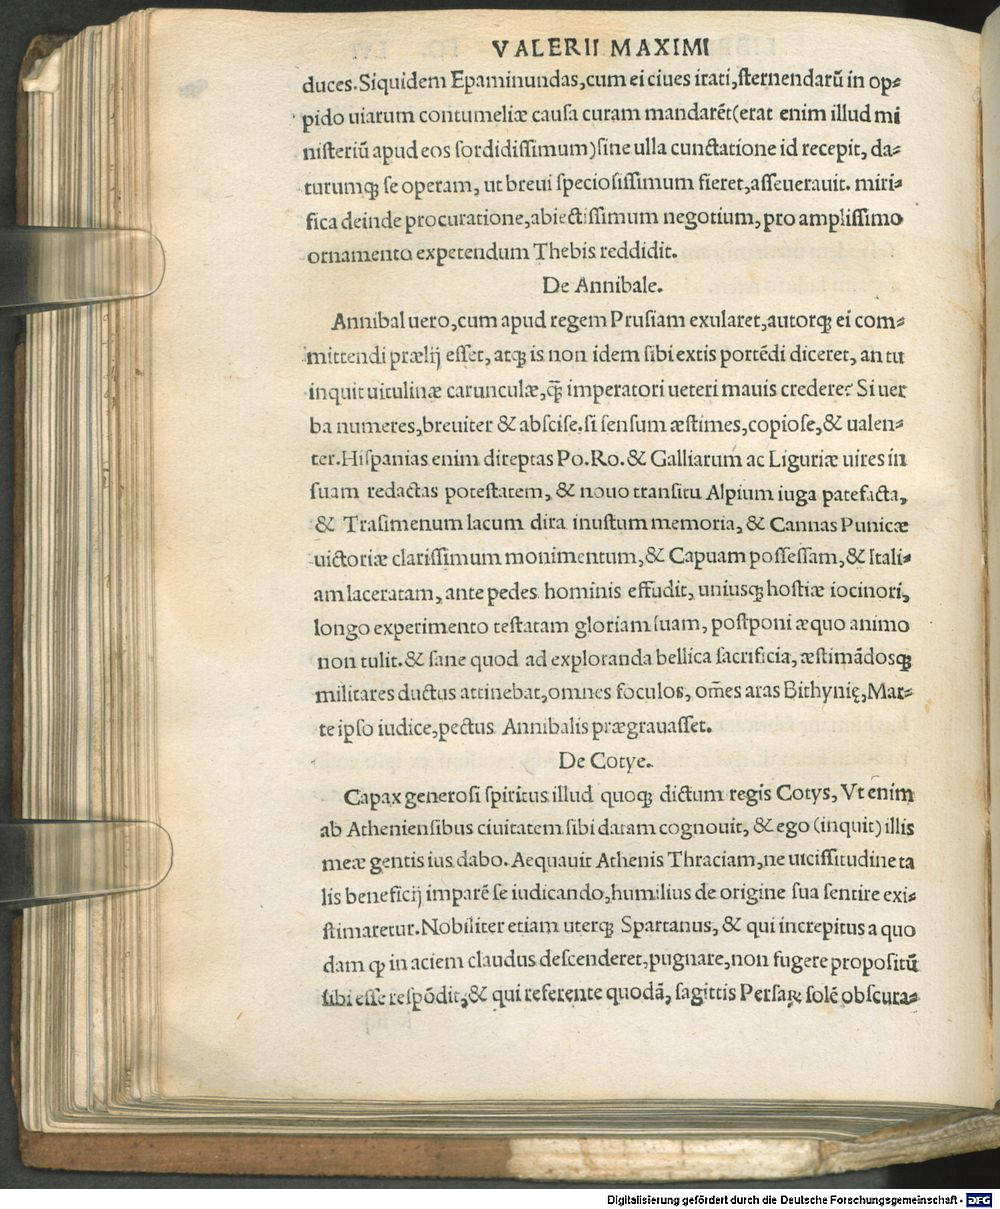 VALERII MAXIMI
duces. Siquidem Epaminundas, cum ei ciues irati, ſternendarũ in op⸗
pido uiarum contumeliæ cauſa curam mandarẽt(erat enim illud mi
niſteriũ apud eos ſordidiſſimum) ſine ulla cunctatione id recepit, da⸗
turumqꝫ ſe operam, ut breui ſpecioſiſſimum fieret, aſſeuerauit. miri⸗
fica deinde procuratione, abiectiſſimum negotium, pro ampliſſimo
ornamento expetendum Thebis reddidit.
De Annibale.
Annibal uero, cum apud regem Pruſiam exularet, autorqꝫ ei com⸗
mittendi prælij eſſet, atqꝫ is non idem ſibi extis portẽdi diceret, an tu
inquit uitulinæ carunculæ, q̃ꝫ imperatori ueteri mauis credere? Si uer
ba numeres, breuiter & abſciſe. ſi ſenſum æſtimes, copioſe, & ualen⸗
ter. Hiſpanias enim direptas Po. Ro. & Galliarum ac Liguriæ uires in
ſuam redactas poteſtatem, & nouo tranſitu Alpium iuga patefacta,
& Traſimenum lacum dira inuſtum memoria, & Cannas Punicæ
uictoriæ clariſſimum monimentum, & Capuam poſſeſſam, & Itali⸗
am laceratam, ante pedes hominis effudit, uniusqꝫ hoſtiæ iocinori,
longo experimento teſtatam gloriam ſuam, poſtponi æquo animo
non tulit. & ſane quod ad exploranda bellica ſacrificia, æſtimãdosqꝫ
militares ductus attinebat, omnes foculos, om̃es aras Bithynię, Mar⸗
te ipſo iudice, pectus Annibalis prægrauaſſet.
De Cotye.
Capax generoſi ſpiritus illud quoqꝫ dictum regis Cotys, Vt enim
ab Athenienſibus ciuitatem ſibi datam cognouit, & ego (inquit) illis
meæ gentis ius dabo. Aequauit Athenis Thraciam, ne uiciſſitudine ta
lis beneficij imparẽ ſe iudicando, humilius de origine ſua ſentire exi⸗
ſtimaretur. Nobiliter etiam uterqꝫ Spartanus, & qui increpitus a quo
dam ꝙ in aciem claudus deſcenderet, pugnare, non fugere propoſitũ
ſibi eſſe reſpõdit, & qui referente quodã, ſagittis Perſaꝝ ſolẽ obſcura⸗
Digitalisierung gefördert durch die Deutsche Forschungsgemeinschaft - DFG